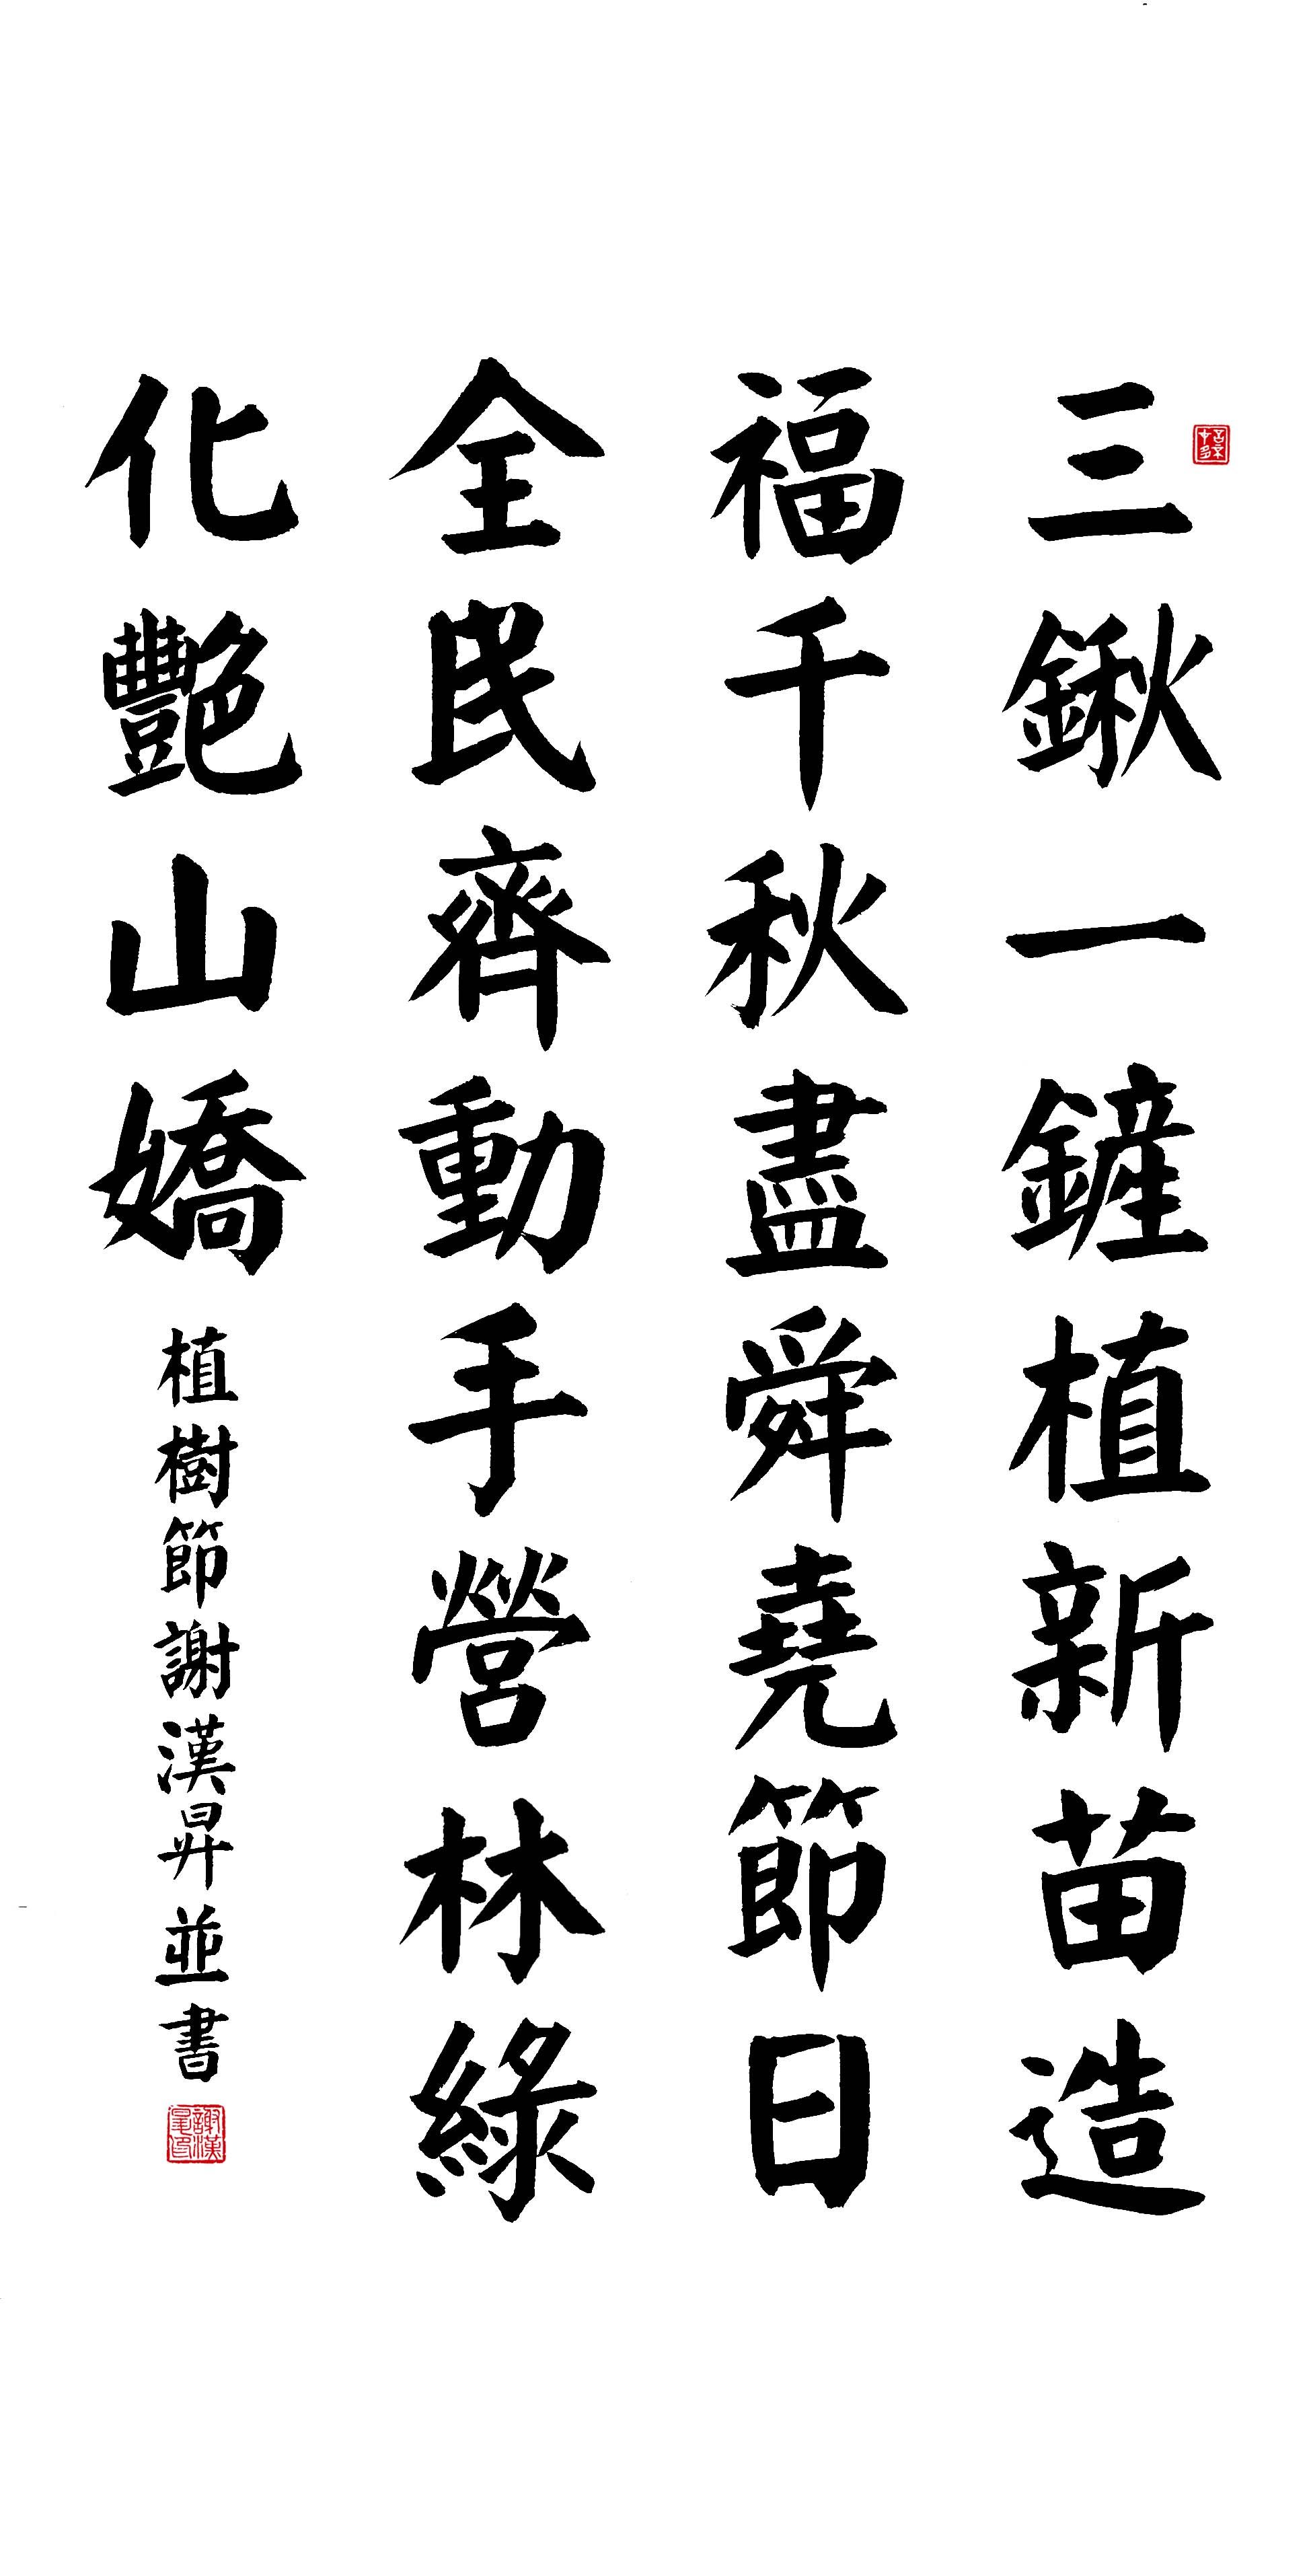 三鍬一鏟植新苗造
福千秋盡舜堯節日
全民齊動手營林綠
化艷山嬌
植樹節謝漢昇並書